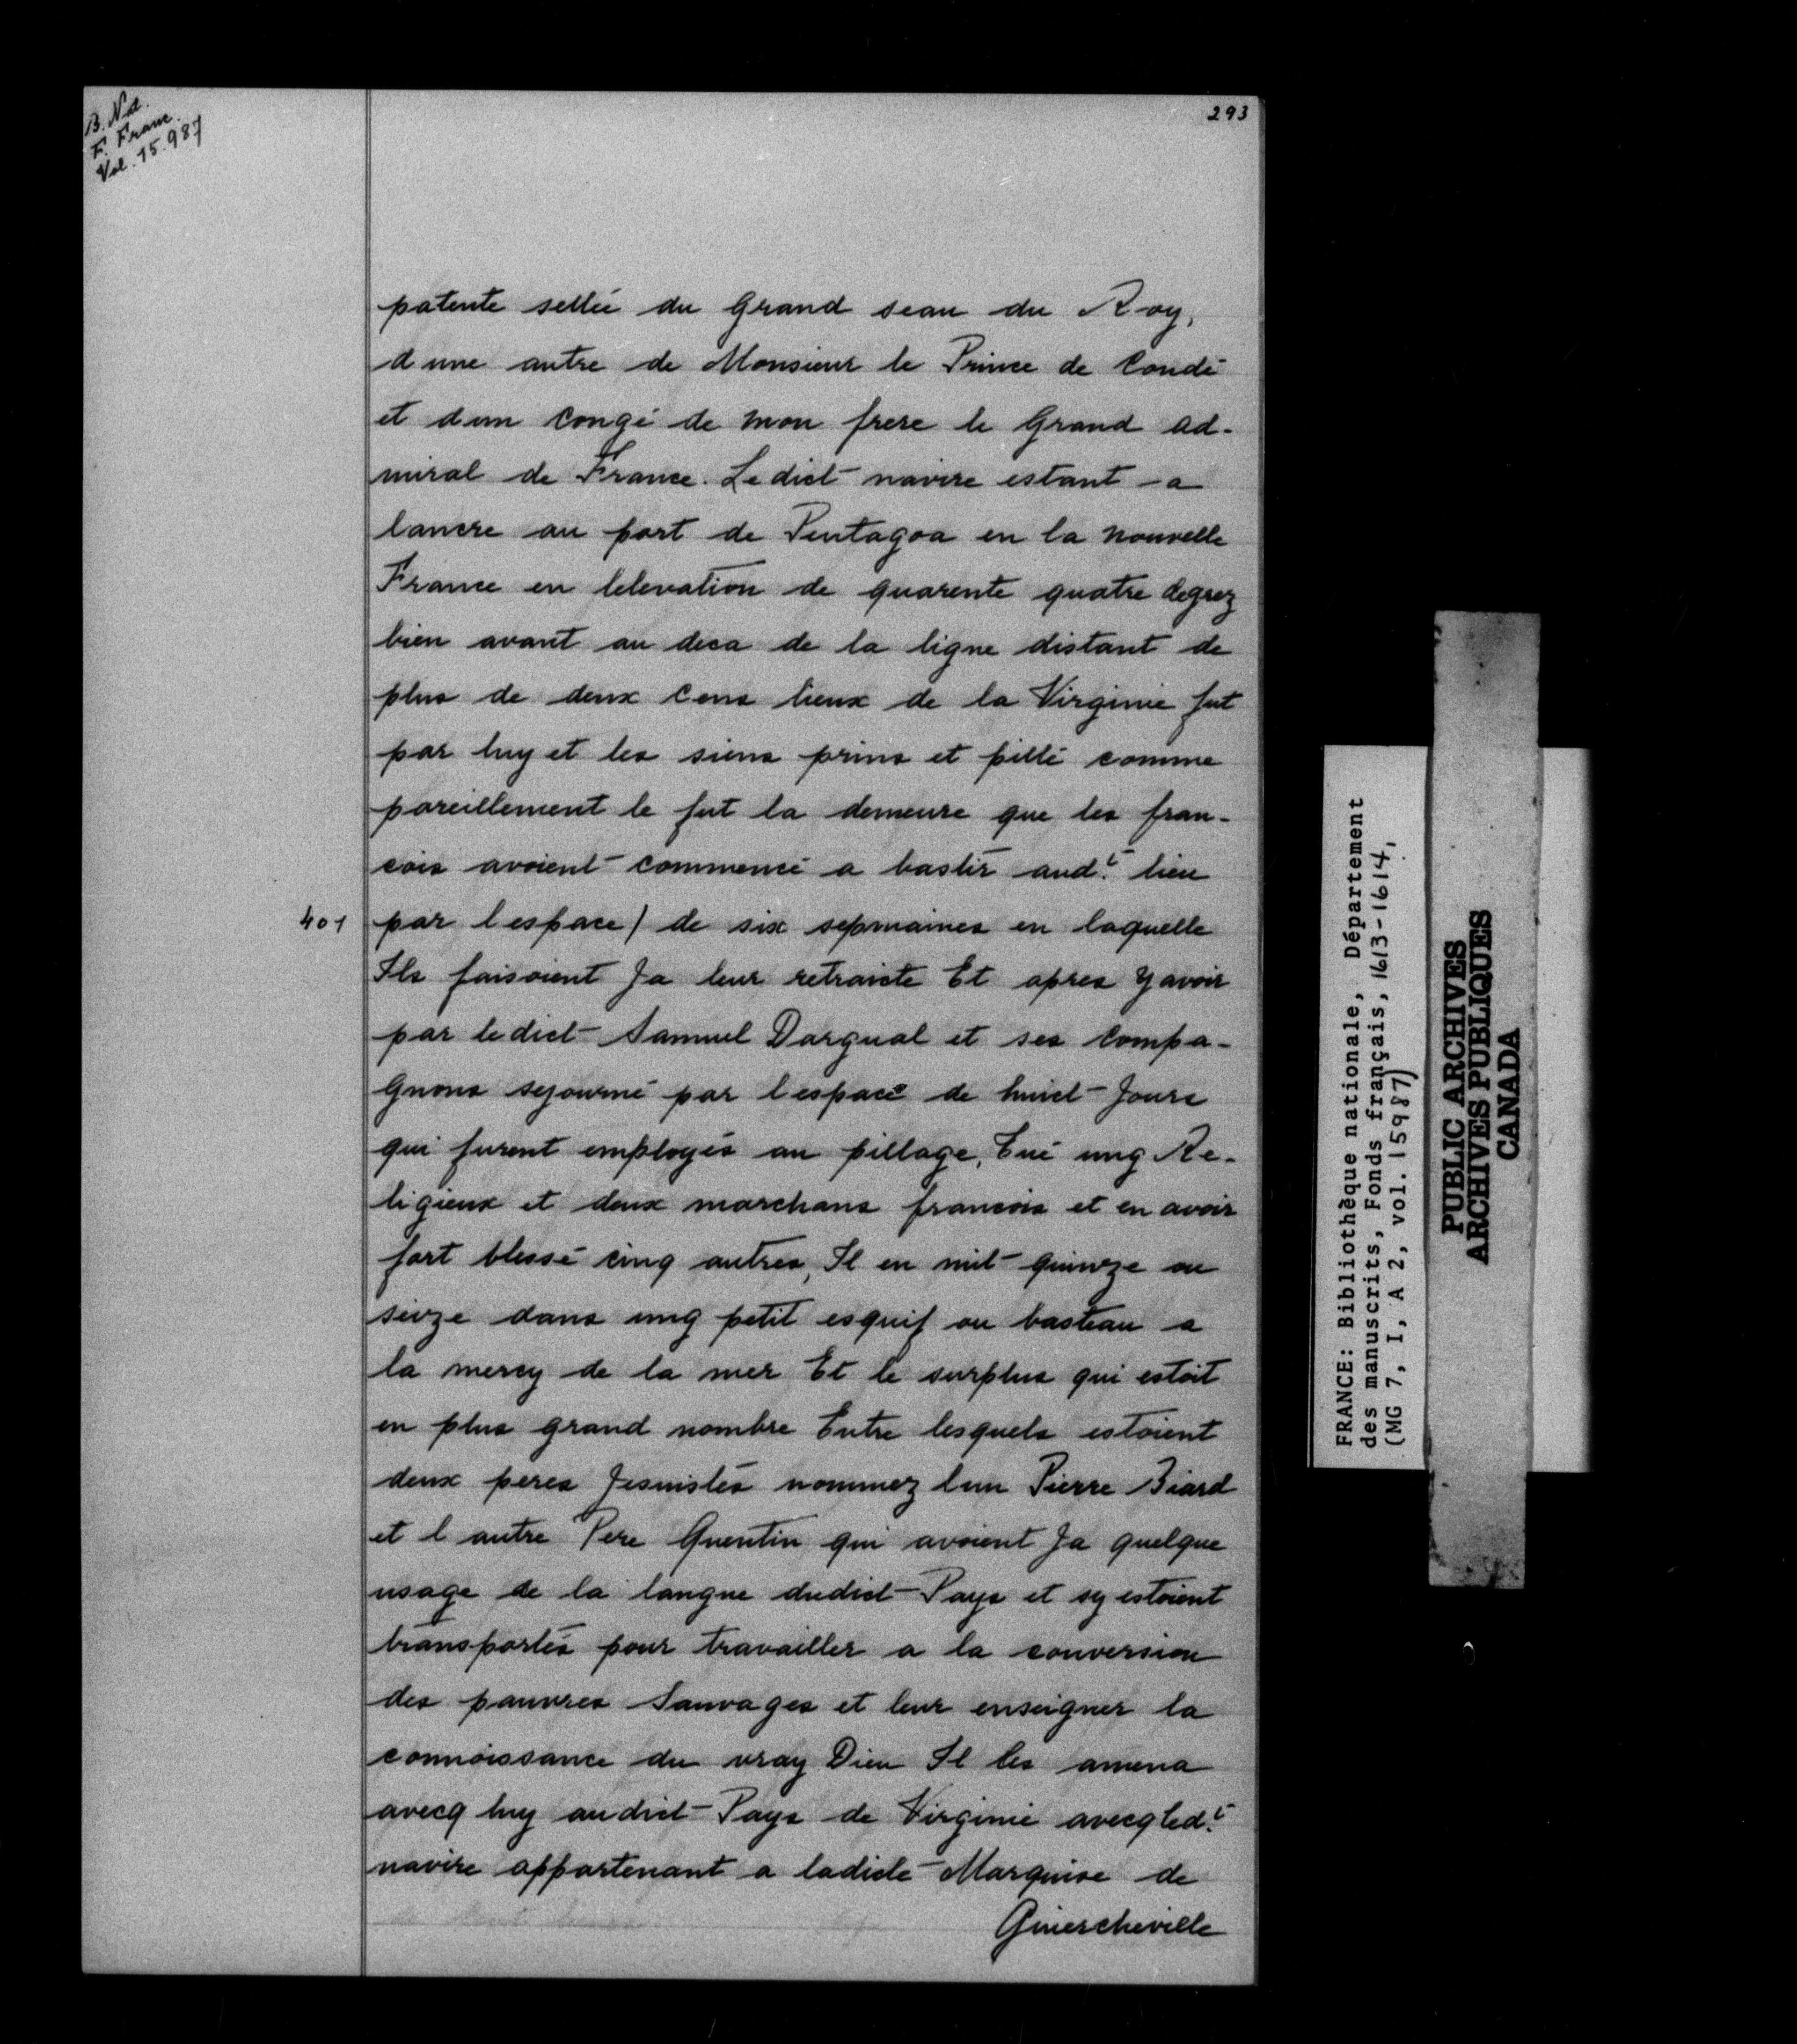 B. Nat.
F. Franc.
Vol. 15.987
293
patente sellée du Grand seau du Roy,
d une autre de Monsieur le Prince de Condé
et dun Congé de mon frere le Grand ad-
miral de France. Le dict navire estant a
lancre au port de Pentagoa en la nouvelle
France en lelevation de quarente quatre degrez
bien avant au deca de la ligne distant de
plus de deux cens lieux de la Virginie fut
par luy et les siens prins et pillé comme
pareillement le fut la demeure que les fran-
cois avoient commencé a bastir aud.t lieu
401 par l espace / de six sepmaines en laquelle
Ils faisoient Ja leur retraicte Et apres y avoir
par le dict Samuel Dargual et ses Compa-
gnons sejourné par l espace de huict Jours
qui furent employés au pillage, Tué ung Re-
ligieux et deux marchans francois et en avoir
fort blessé cinq autres, Il en mit quinze ou
seize dans ung petit esquif ou basteau a
la mercy de la mer Et le surplus qui estoit
en plus grand nombre Entre lesquels estoient
deux peres Jesuistes nommez lun Pierre Biard
et l autre Pere Quentin qui avoient Ja quelque
usage de la langue dudict Pays et sy estoient
transportés pour travailler a la conversion
des pauvres Sauvages et leur enseigner la
connoissance du vray Dieu Il les amena
avecq luy audict Pays de Virginie avecq led.t
navire appartenant a ladicte Marquise de
Guiercheville
FRANCE: Bibliothèque nationale, Département
des manuscrits, Fonds français, 1613-1614,
(MG 7, I, A 2, vol. 15987)
PUBLIC ARCHIVES
ARCHIVES PUBLIQUES
CANADA